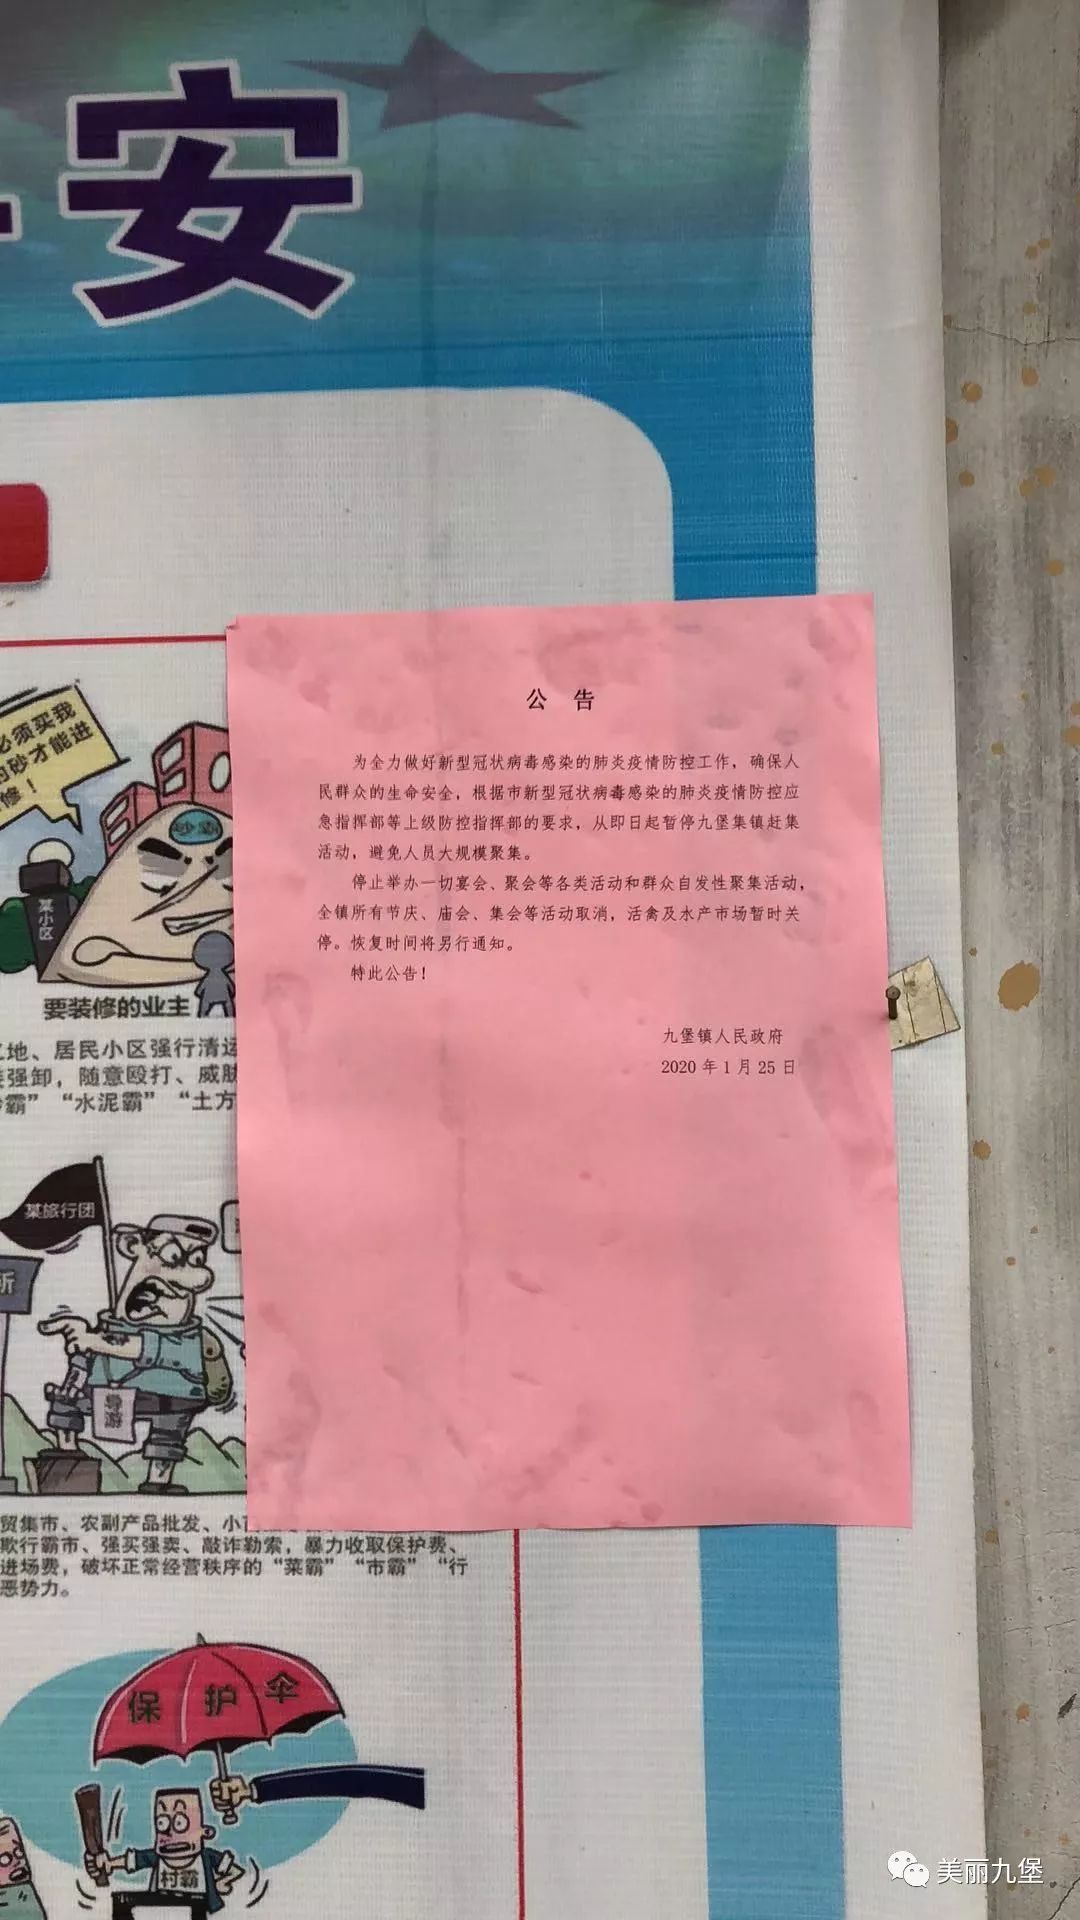 安
公 告
为全力做好新型冠状病毒感染的肺炎疫情防控工作，确保人
民群众的生命安全，根据市新型冠状病毒感染的肺炎疫情防控应
急指挥部等上级防控指挥部的要求，从即日起暂停九堡集镇赶集
活动，避免人员大规模聚集。
停止举办一切宴会、聚会等各类活动和群众自发性聚集活动，
全镇所有节庆、庙会、集会等活动取消，活禽及水产市场暂时关
停。恢复时间将另行通知。
特此公告！
九堡镇人民政府
2020 年 1 月 25 日
必须买我
的砂才能进
修！
某小区
要装修的业主
地、居民小区强行清运
强卸，随意殴打、威胁
霸”“水泥霸”“土方
某旅行团
导游
贸集市、农副产品批发、小
欺行霸市、强买强卖、敲诈勒索，暴力收取保护费、
进场费，破坏正常经营秩序的“菜霸”“市霸”“行
恶势力。
保护伞
村霸
美丽九堡